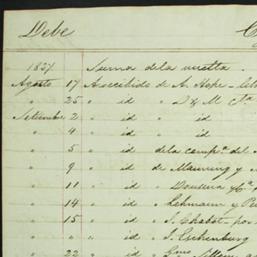 Debe C
1827 Suma de la vuelta
Agosto 17 A recibido de A. Hope
" 25 " id " J & M Cta
Setiembre 2 " id " id
" 4 " id " id
" 5 " id de la campa. del
" 9 " id de Manning y
" 11 " id "
" 14 " id " Lehmann y
" 15 " id " J. Chabot por
" id " J. Eschenburg
" 22 " id "